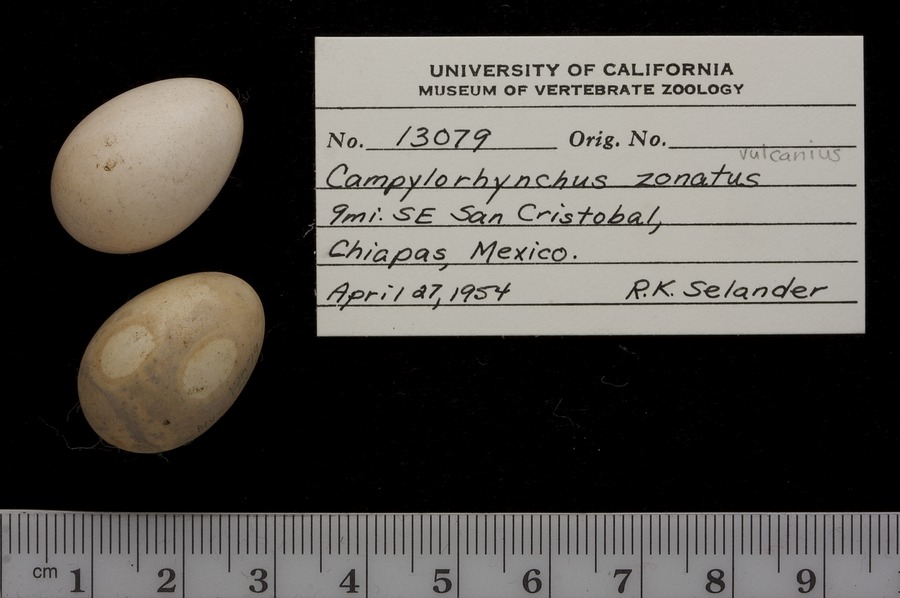 UNIVERSITY OF CALIFORNIA
MUSEUM OF VERTEBRATE ZOOLOGY
No. 13079 Orig. No.
vulcanius
Campylorhynchus zonatus
9mi. SE San Cristobal,
Chiapas, Mexico.
April 27, 1954 R.K. Selander
cm 1 2 3 4 5 6 7 8 9